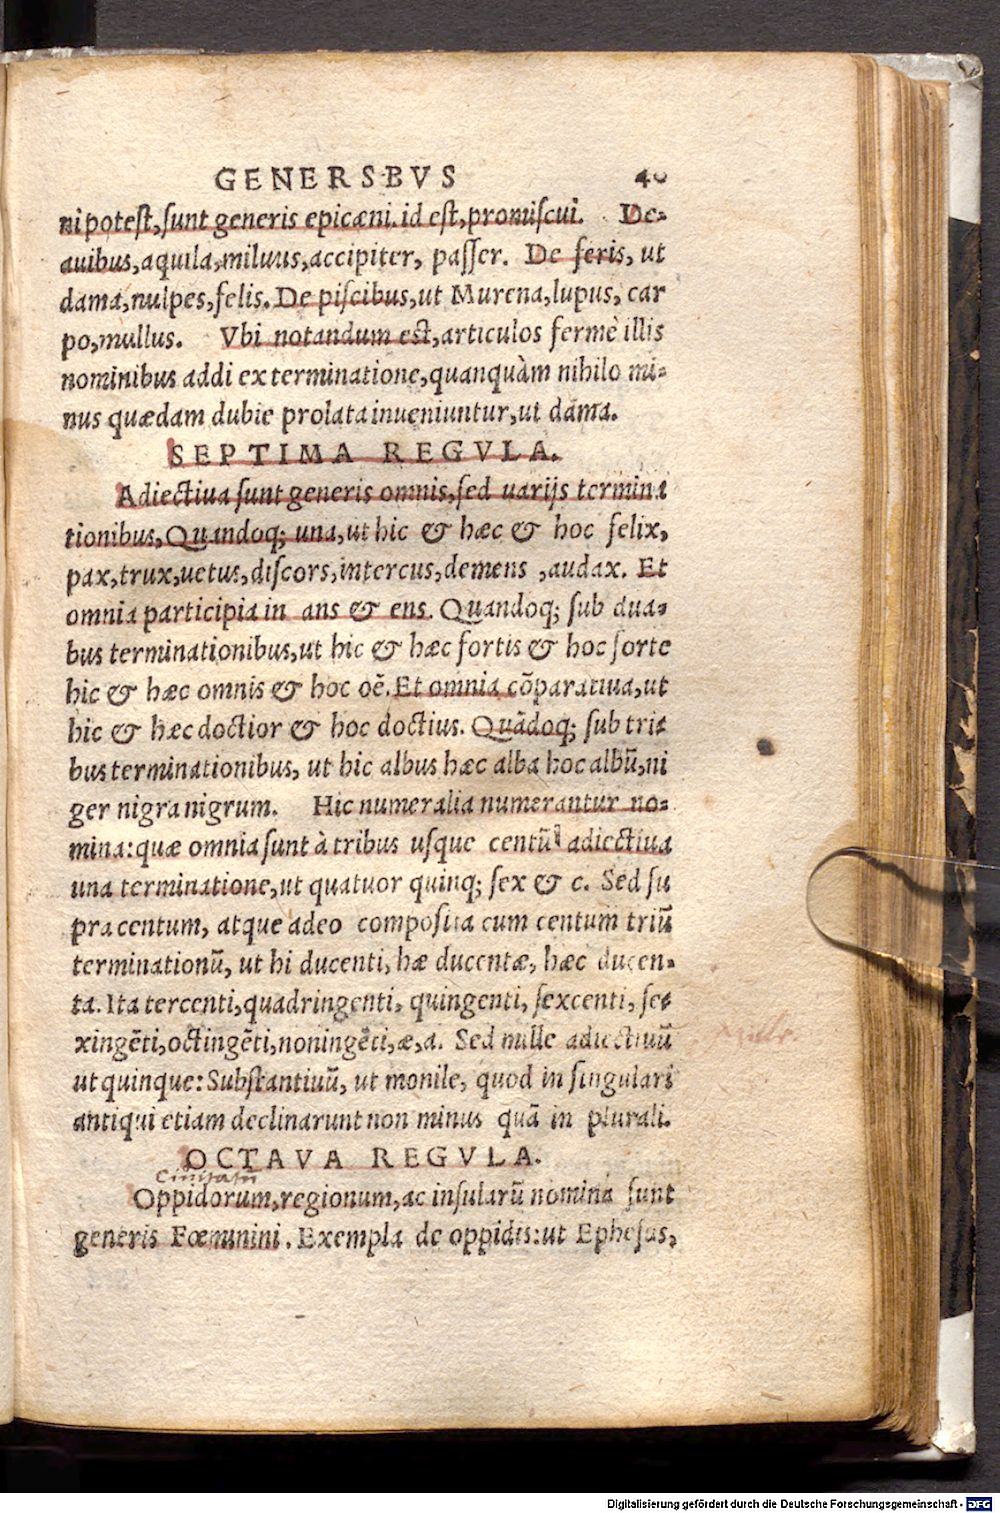 GENERSBVS 40
ni potest, sunt generis epicæni. id est, promiscui. De-
auibus, aquila, miluus, accipiter, passer. De feris, ut
dama, uulpes, felis. De piscibus, ut Murena, lupus, car
po, mullus. Vbi notandum est, articulos fermè illis
nominibus addi ex terminatione, quanquàm nihilo mi-
nus quædam dubie prolata inueniuntur, ut dama.
SEPTIMA REGVLA.
Adiectiua sunt generis omnis, sed uarijs termina
tionibus, Quandoq; una, ut hic & hæc & hoc felix,
pax, trux, uetus, discors, intercus, demens, audax. Et
omnia participia in ans & ens. Quandoq; sub dua-
bus terminationibus, ut hic & hæc fortis & hoc forte
hic & hæc omnis & hoc oē. Et omnia cõparatiua, ut
hic & hæc doctior & hoc doctius. Quãdoq; sub tri-
bus terminationibus, ut hic albus hæc alba hoc albũ, ni
ger nigra nigrum. Hic numeralia numerantur no-
mina: quæ omnia sunt à tribus usque centũ adiectiua
una terminatione, ut quatuor quinq; sex & c. Sed su
pra centum, atque adeo composita cum centum triũ
terminationũ, ut hi ducenti, hæ ducentæ, hæc ducen-
ta. Ita tercenti, quadringenti, quingenti, sexcenti, se-
xingẽti, octingẽti, noningẽti, æ, a. Sed mille adiectiuũ
ut quinque: Substantiuũ, ut monile, quod in singulari
antiqui etiam declinarunt non minus quã in plurali.
OCTAVA REGVLA.
Ciuitatũ
Oppidorum, regionum, ac insularũ nomina sunt
generis Fœminini. Exempla de oppidis: ut Ephesus,
Digitalisierung gefördert durch die Deutsche Forschungsgemeinschaft - DFG